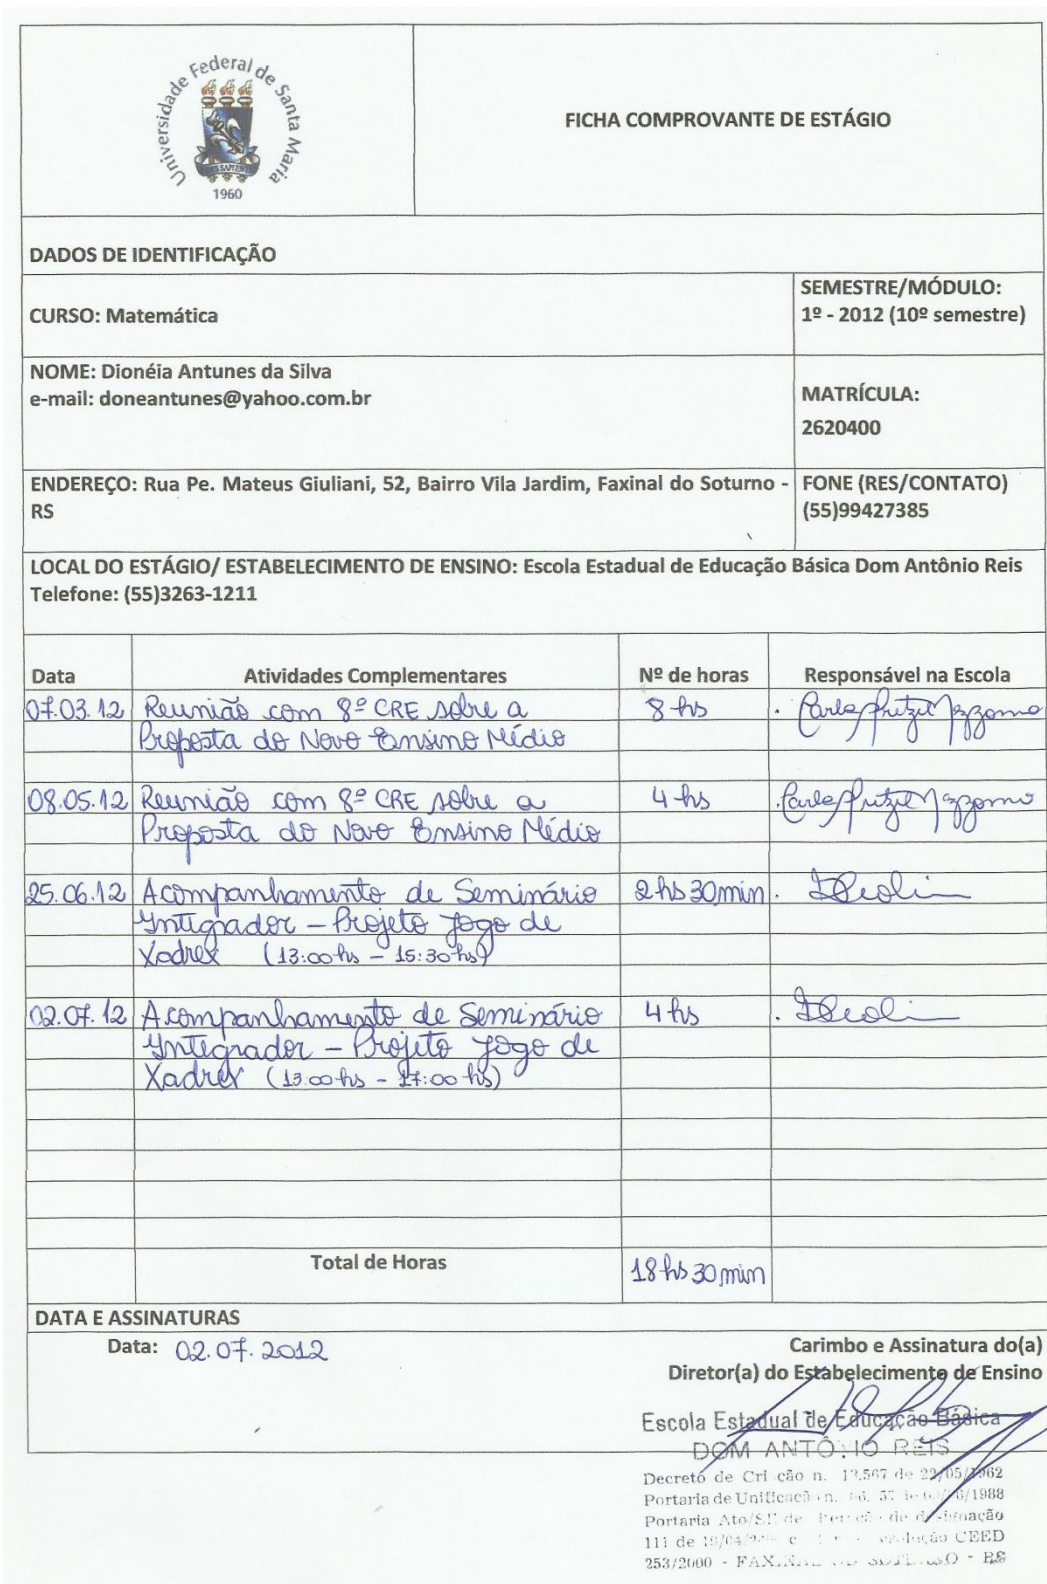 Universidade Federal de Santa Maria
1960
FICHA COMPROVANTE DE ESTÁGIO
DADOS DE IDENTIFICAÇÃO
CURSO: Matemática
SEMESTRE/MÓDULO:
1º - 2012 (10º semestre)
NOME: Dionéia Antunes da Silva
e-mail: doneantunes@yahoo.com.br
MATRÍCULA:
2620400
ENDEREÇO: Rua Pe. Mateus Giuliani, 52, Bairro Vila Jardim, Faxinal do Soturno -
RS
FONE (RES/CONTATO)
(55)99427385
LOCAL DO ESTÁGIO/ ESTABELECIMENTO DE ENSINO: Escola Estadual de Educação Básica Dom Antônio Reis
Telefone: (55)3263-1211
Data Atividades Complementares Nº de horas Responsável na Escola
07.03.12 Reunião com 8ª CRE sobre a 8 hs
Proposta do Novo Ensino Médio
08.05.12 Reunião com 8ª CRE sobre a 4 hs
Proposta do Novo Ensino Médio
25.06.12 Acompanhamento de Seminário 2 hs 30 min
Integrador - Projeto Jogo de
Xadrex (13:00 hs - 15:30 hs)
02.07.12 Acompanhamento de Seminário 4 hs
Integrador - Projeto Jogo de
Xadrex (13:00 hs - 17:00 hs)
Total de Horas 18 hs 30 min
DATA E ASSINATURAS
Data: 02.07.2012
Carimbo e Assinatura do(a)
Diretor(a) do Estabelecimento de Ensino
Escola Estadual de Educação Básica
DOM ANTÔNIO REIS
Decreto de Cri ção n. de 22/05/1962
Portaria de Unificação n. /1988
Portaria Ato/ de de
111 de CEED
253/2000 - - RS